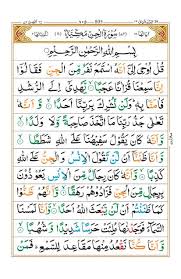 سُوْرَةُ الْجِنِّ مَكِّيَّةٌ
بِسْمِ اللّٰهِ الرَّحْمٰنِ الرَّحِيْمِ
قُلْ اُوْحِيَ اِلَيَّ اَنَّهُ اسْتَمَعَ نَفَرٌ مِّنَ الْجِنِّ فَقَالُوْٓا
اِنَّا سَمِعْنَا قُرْاٰنًا عَجَبًا ۙ يَّهْدِيْٓ اِلَى الرُّشْدِ
فَاٰمَنَّا بِهٖ ؕ وَلَنْ نُّشْرِكَ بِرَبِّنَآ اَحَدًا ۙ وَّاَنَّهٗ
تَعٰلٰى جَدُّ رَبِّنَا مَا اتَّخَذَ صَاحِبَةً وَّلَا وَلَدًا ۙ
وَّاَنَّهٗ كَانَ يَقُوْلُ سَفِيْهُنَا عَلَى اللّٰهِ شَطَطًا ۙ
وَّاَنَّا ظَنَنَّآ اَنْ لَّنْ تَقُوْلَ الْاِنْسُ وَالْجِنُّ عَلَى اللّٰهِ
بِرِجَالٍ مِّنَ الْجِنِّ فَزَادُوْهُمْ رَهَقًا ۙ وَّاَنَّهُمْ ظَنُّوْا
كَمَا ظَنَنْتُمْ اَنْ لَّنْ يَّبْعَثَ اللّٰهُ اَحَدًا ۙ وَّاَنَّا
وَّاَنَّا كُنَّا نَقْعُدُ مِنْهَا مَقَاعِدَ لِلسَّمْعِ ؕ فَمَنْ